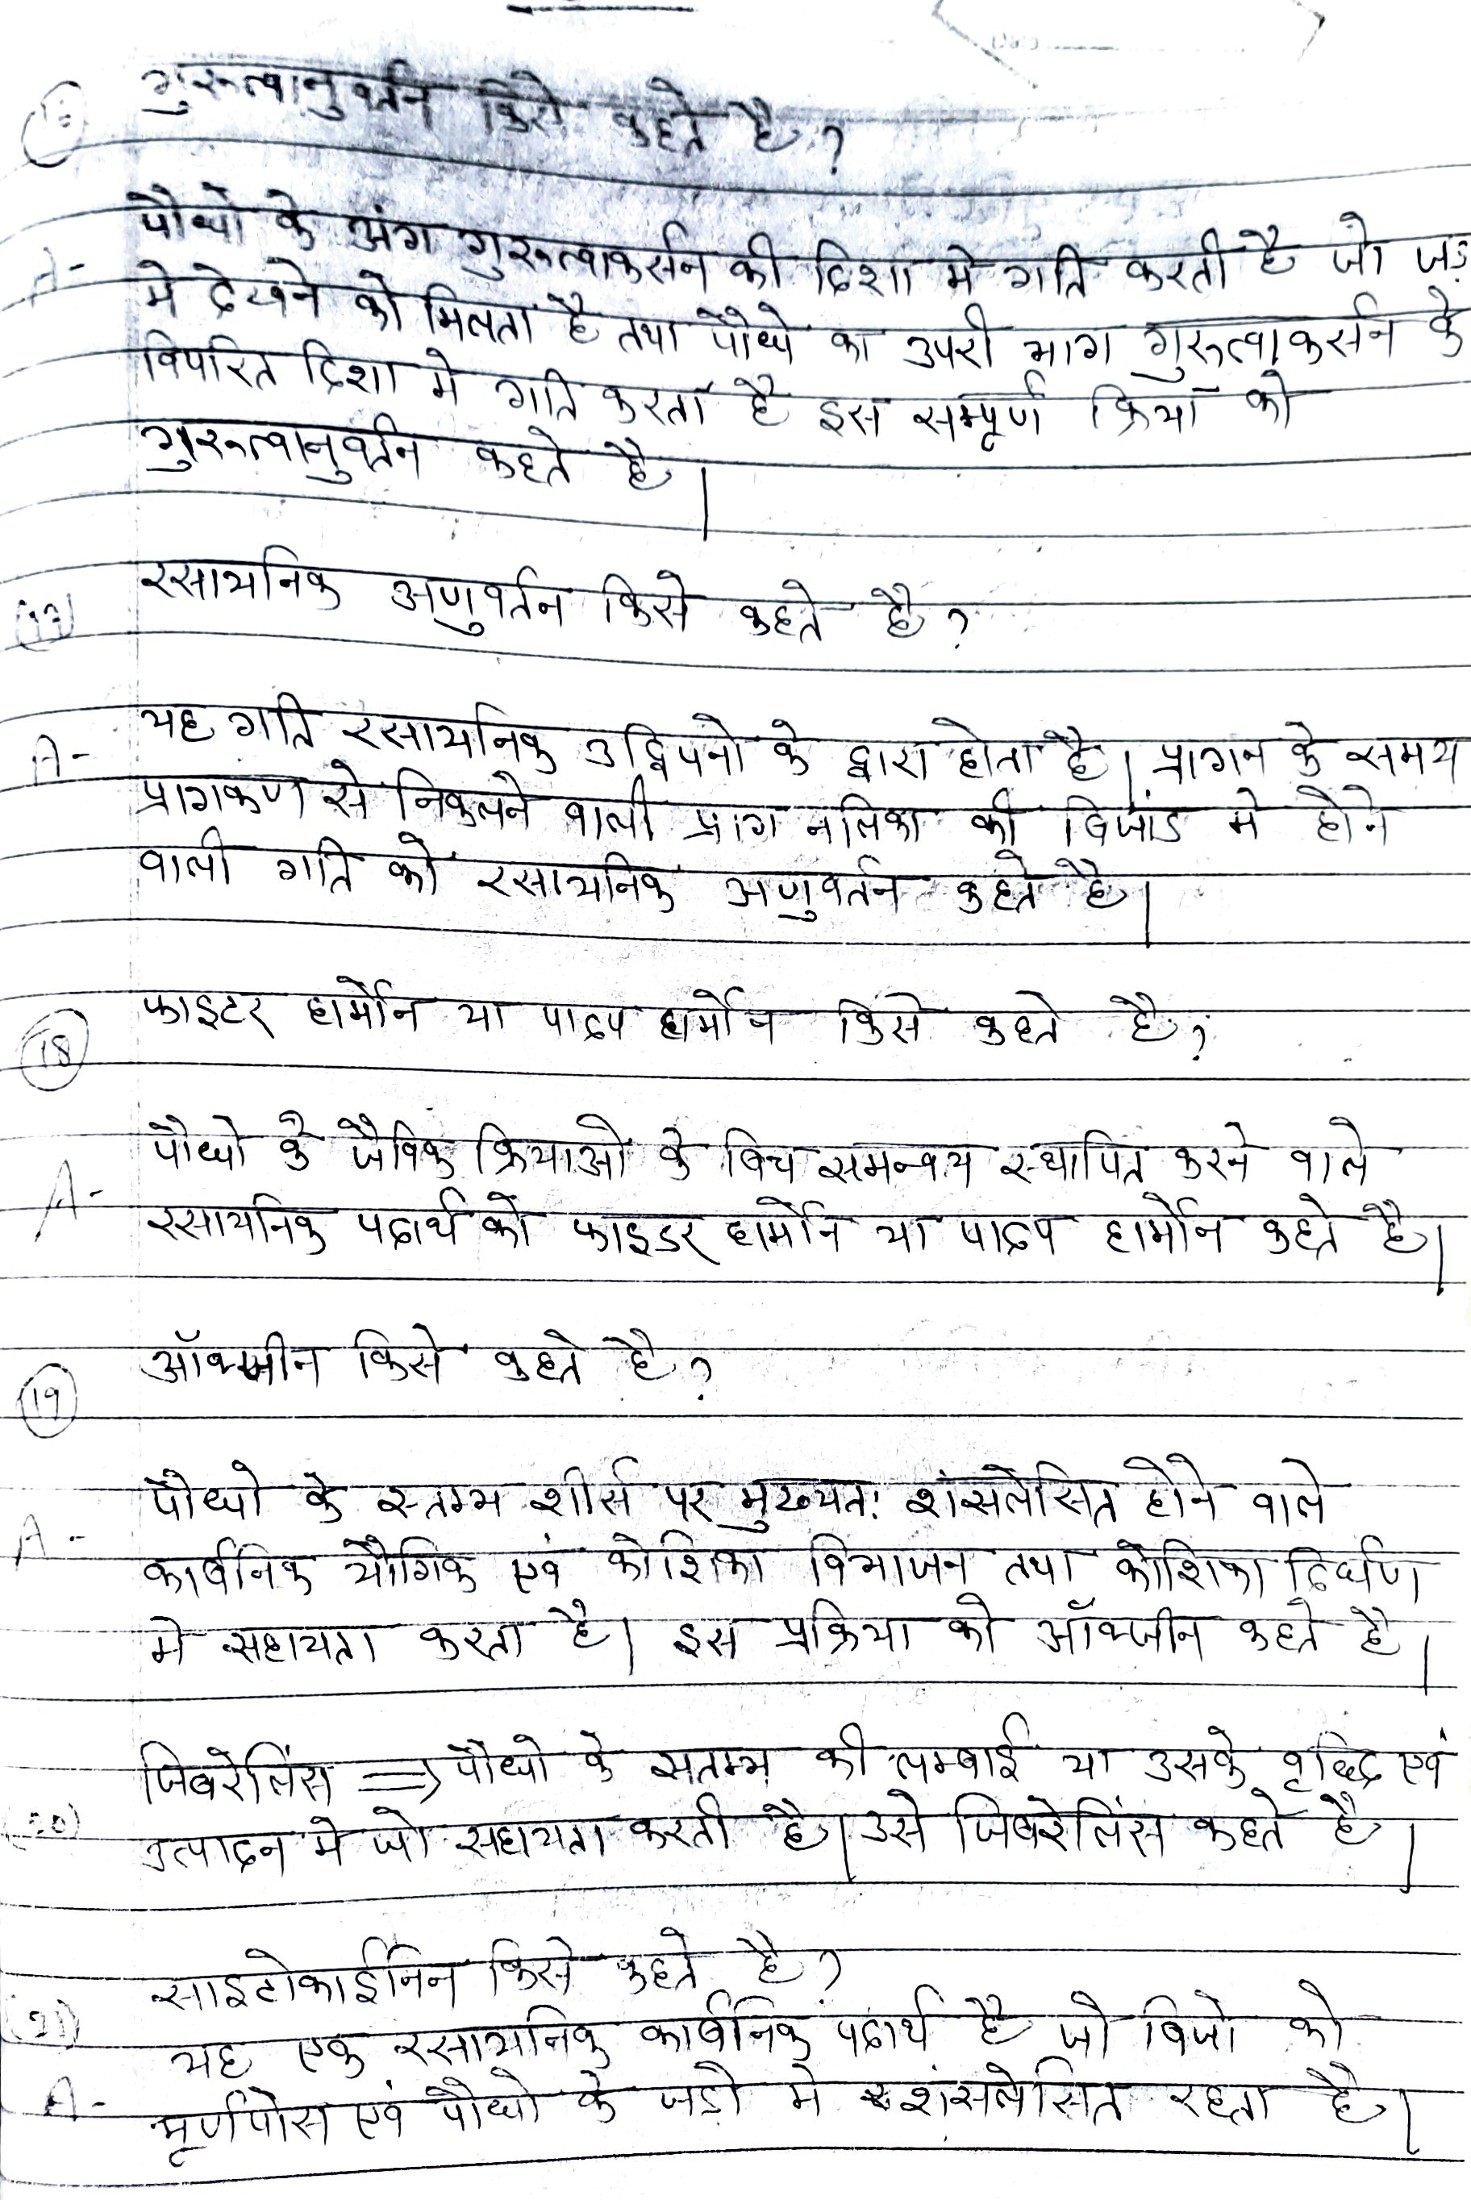 गुरुत्वानुवर्तन किसे कहते है ?
A- पौधो के अंग गुरुत्वाकर्सन की दिशा मे गति करती है जो जड़
मे देखने को मिलता है तथा पौधे का उपरी भाग गुरुत्वाकर्सन के
विपरित दिशा मे गति करता है इस सम्पूर्ण क्रिया को
गुरुत्वानुवर्तन कहते है |
(17) रसायनिक अणुवर्तन किसे कहते है ?
A- यह गति रसायनिक उद्विपनो के द्वारा होता है | प्रागन के समय
प्रागकण से निकलने वाली प्राग नलिका की बिजांड मे होने
वाली गति को रसायनिक अणुवर्तन कहते है |
(18) फाइटर हार्मोन या पादप हार्मोन किसे कहते है ?
A- पौधो के जैविक क्रियाओ के बिच समन्वय स्थापित करने वाले
रसायनिक पदार्थ को फाइडर हार्मोन या पादप हार्मोन कहते है |
(19) ऑक्सीन किसे कहते है ?
A- पौधो के स्तम्भ शीर्स पर मुख्यत: शंसलेसित होने वाले
कार्बनिक यौगिक एवं कोशिका विभाजन तथा कोशिका दिर्घण
मे सहायता करता है | इस प्रक्रिया को ऑक्जीन कहते है |
(20) जिबरेलिंस ⇒ पौधो के सतम्भ की लम्बाई या उसके वृद्धि एवं
उत्पादन मे जो सहायता करती है | उसे जिबरेलिंस कहते है |
(21) साइटोकाईनिन किसे कहते है ?
A- यह एक रसायनिक कार्बनिक पदार्थ है जो बिजो को
भ्रूर्णपोस एवं पौधो के जड़ो मे शंसलेसित रहता है |